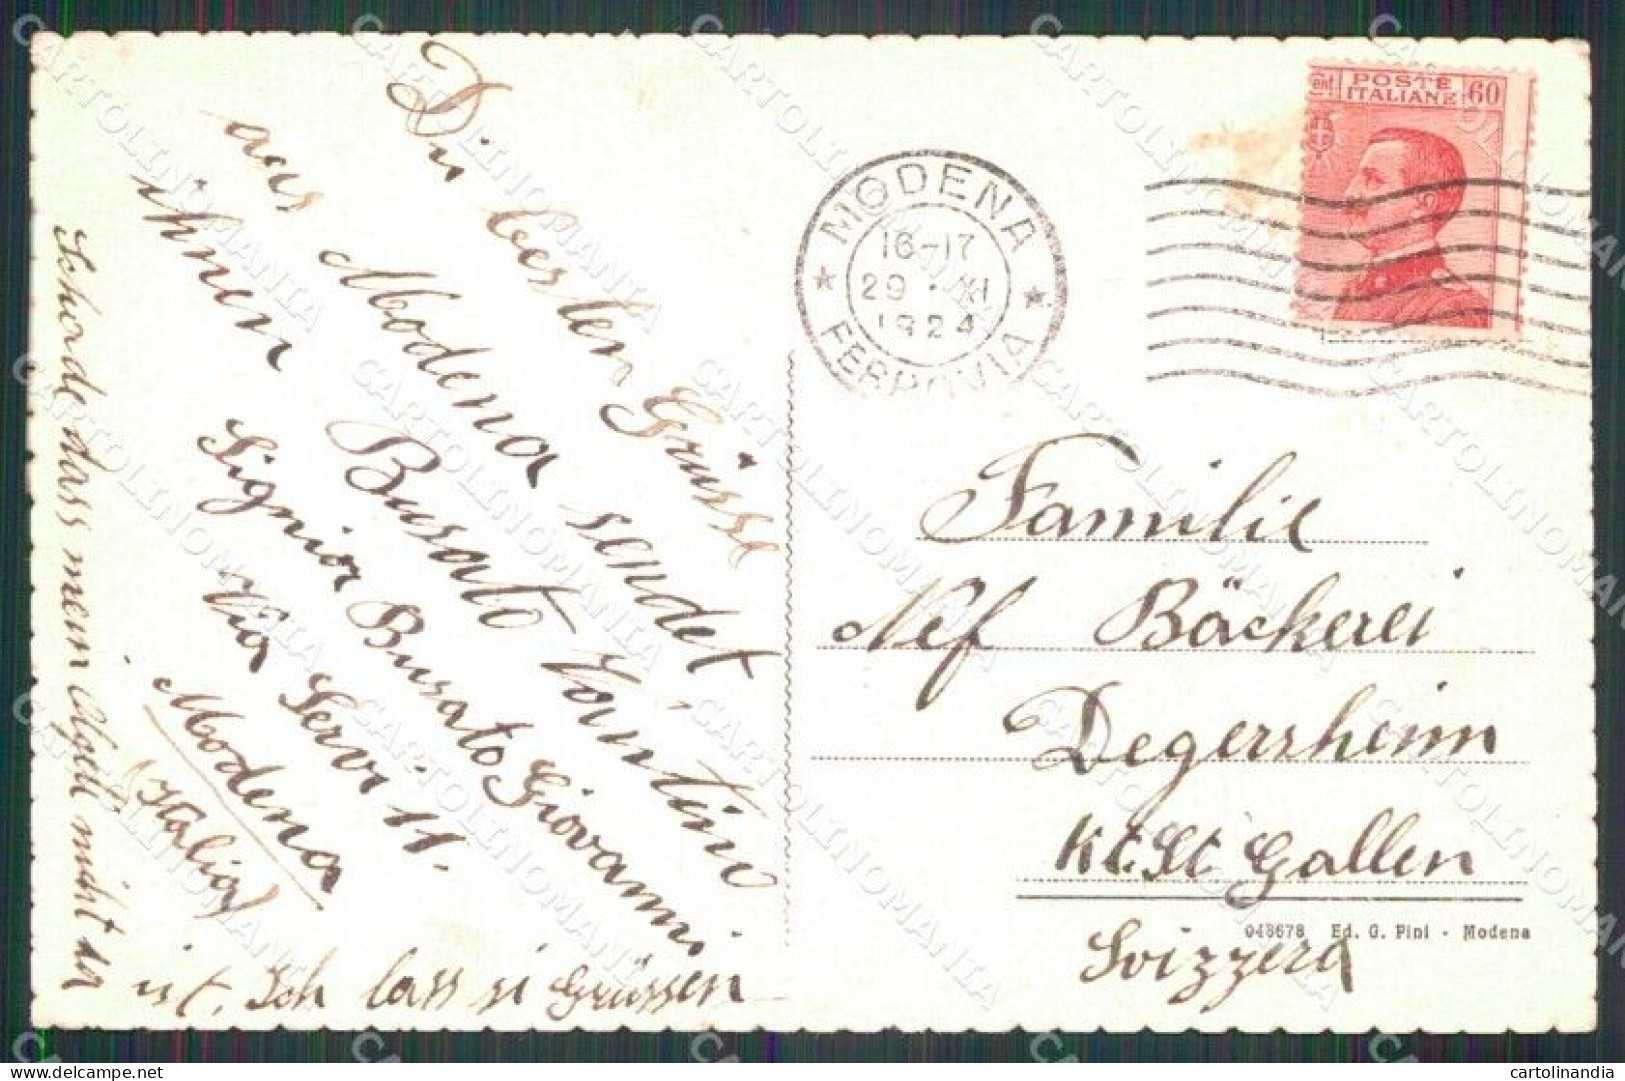 Die besten Grüsse
aus Modena sendet,
ihnen Busato
Signior Busato Giovanni
Via Servi 11.
Modena
(Italia)
Schorde dass mein nicht dor
ist. Ich lass si Grüssen
MODENA
16-17
29 · XI
1924
FERROVIA
Cent. POSTE ITALIANE 60
Familie
Nef Bäckerei
Degersheim
Kt. St Gallen
Svizzera
048678 Ed. G. Pini - Modena
CARTOLINOMANIA
cartolinandia